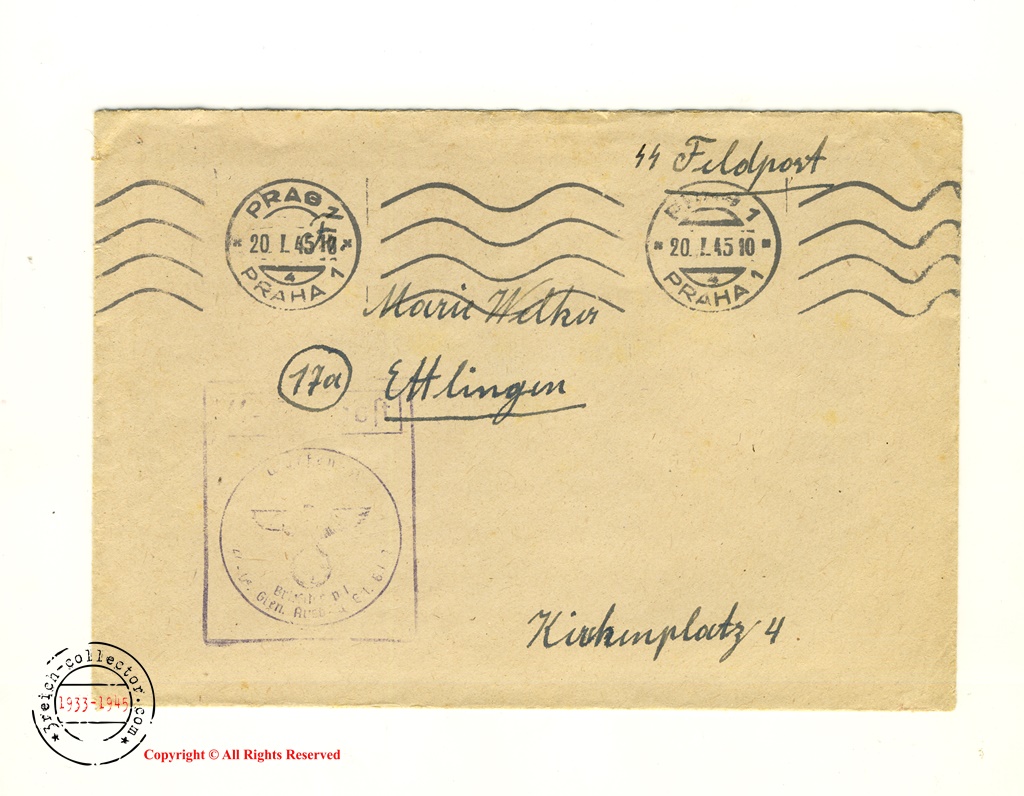 ᛋᛋ Feldpost
PRAG 1
20. I. 45 10
4
PRAHA 1
PRAG 1
20. I. 45 10
4
PRAHA 1
Marie Welker
17a Ettlingen
Kirchenplatz 4
3reich-collector.com
1933-1945
Copyright © All Rights Reserved